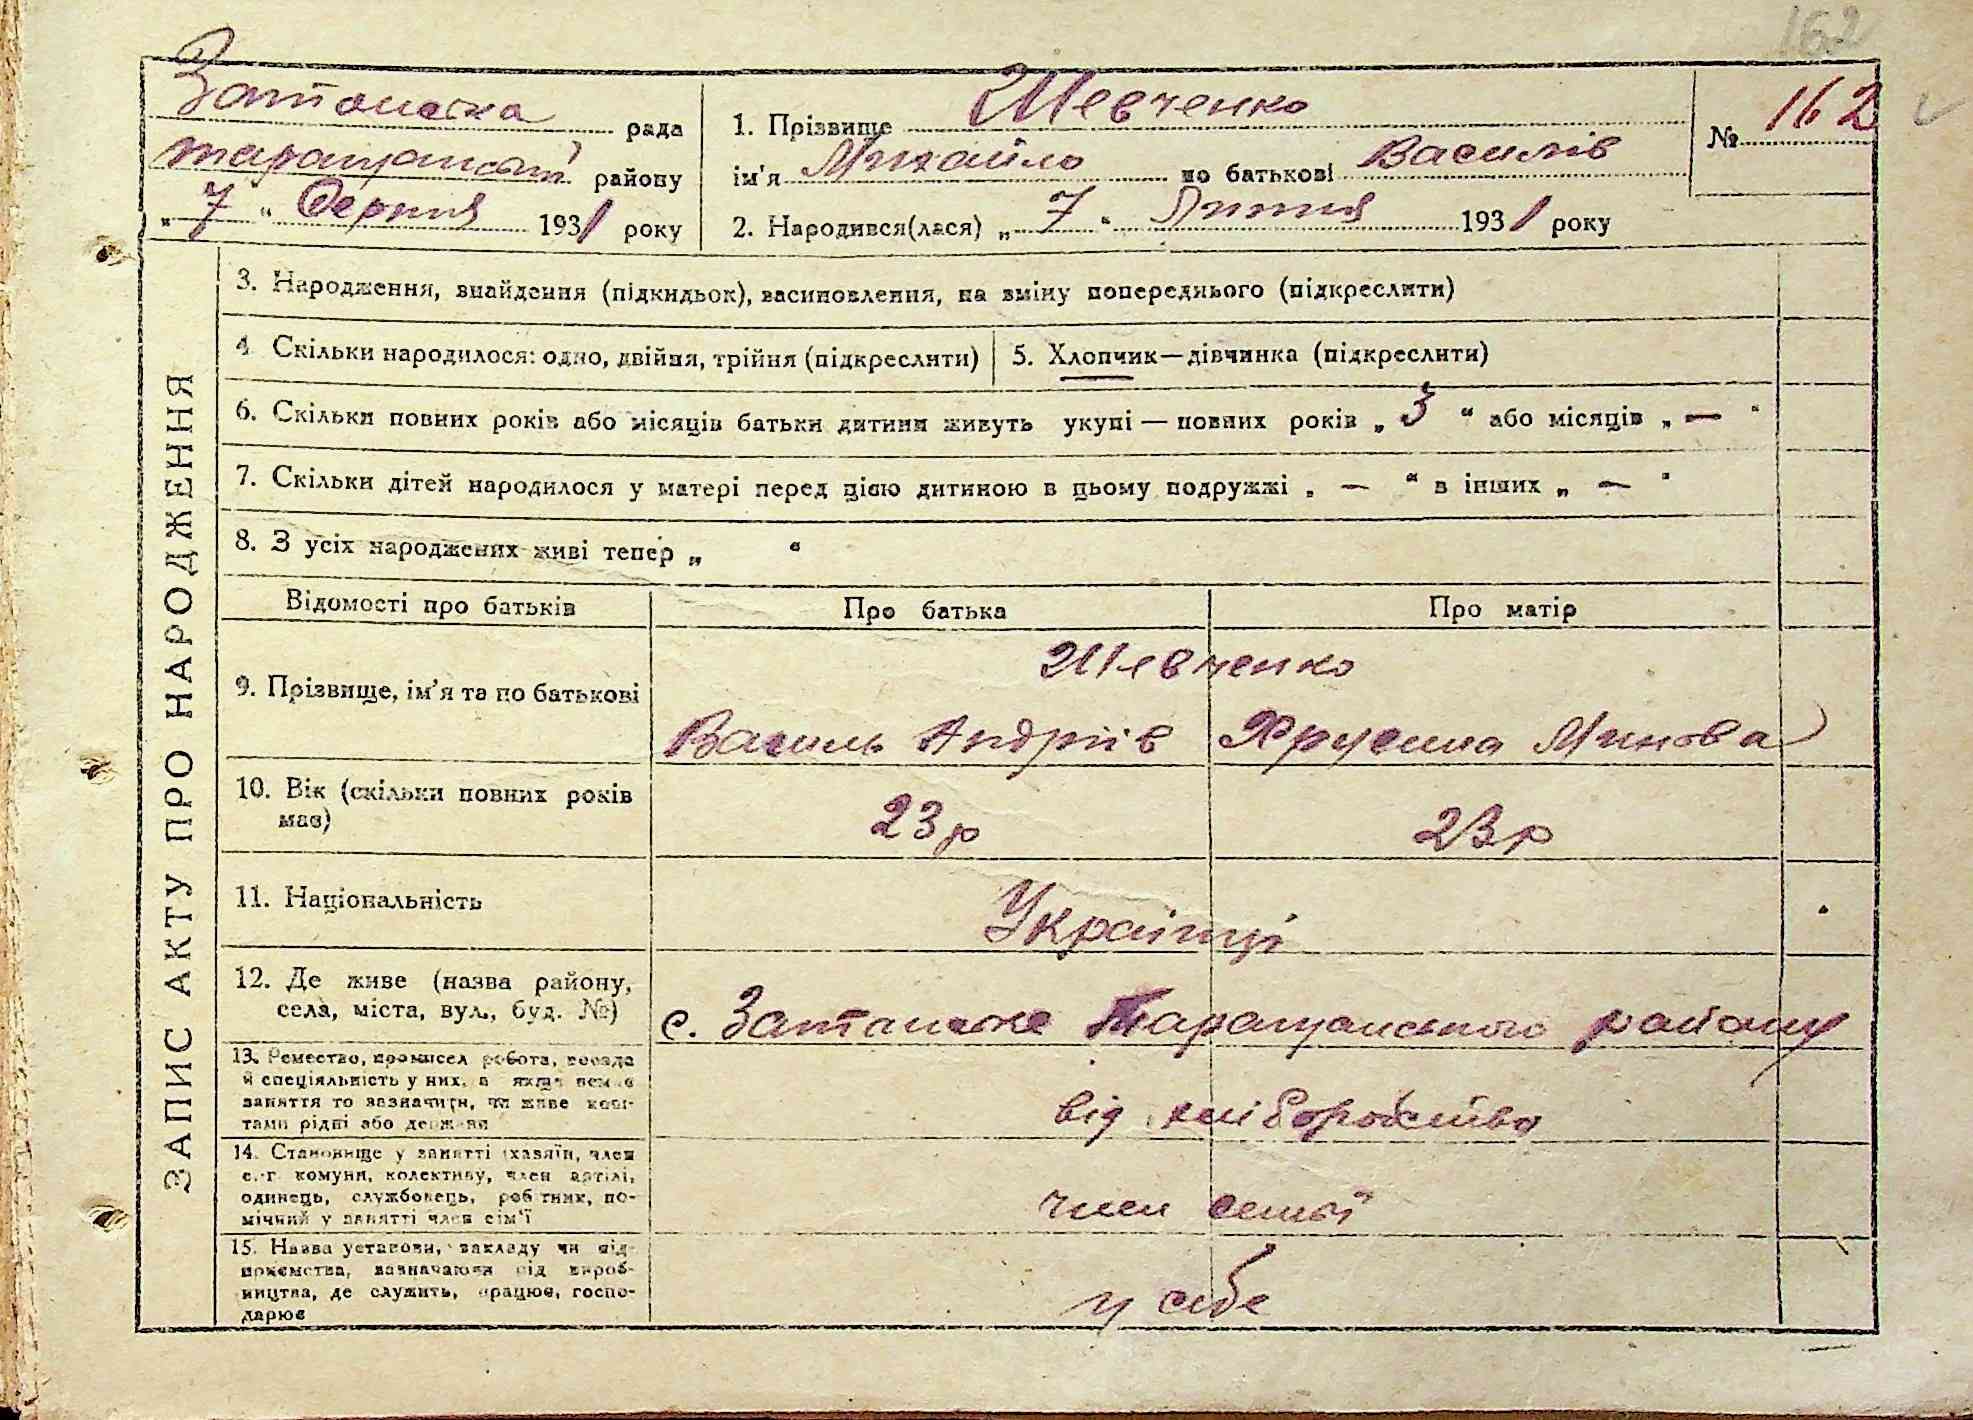 162
Затонска рада
Таращанськ. району
„ 7 “ Серпня 1931 року
1. Прізвище Шевченко
ім'я Михайло по батькові Василів
2. Народився(лася) „ 7 “ Липня 1931 року
№ 162
ЗАПИС АКТУ ПРО НАРОДЖЕННЯ
3. Народження, знайдення (підкидьок), васиновлення, на зміну попереднього (підкреслити)
4 Скільки народилося: одно, двійня, трійня (підкреслити)
5. Хлопчик—дівчинка (підкреслити)
6. Скільки повних років або місяців батьки дитини живуть укупі — повних років „ 3 “ або місяців „ — “
7. Скільки дітей народилося у матері перед цією дитиною в цьому подружжі „ — “ в інших „ — “
8. З усіх народжених живі тепер „ “
Відомості про батьків
Про батька
Про матір
9. Прізвище, ім'я та по батькові
Шевченко
Василь Андріїв
Хрусина Минова
10. Вік (скільки повних років
має)
23 р
23 р
11. Національність
Українці
12. Де живе (назва району,
села, міста, вул., буд. №)
с. Затонске Таращанського району
13. Ремество, промисел робота, посада
й спеціяльність у них, а якщо немає
заняття то зазначити, чи живе кош-
тами рідні або держави
від хліборобства
14. Становище у занятті (хазяїн, член
с.-г комуни, колективу, член артілі,
одинець, службовець, робітник, по-
мічний у занятті член сім'ї
член семьї
15. Назва установи, закладу чи під-
приємства, зазначаючи рід вироб-
ництва, де служить, працює, госпо-
дарює
у себе